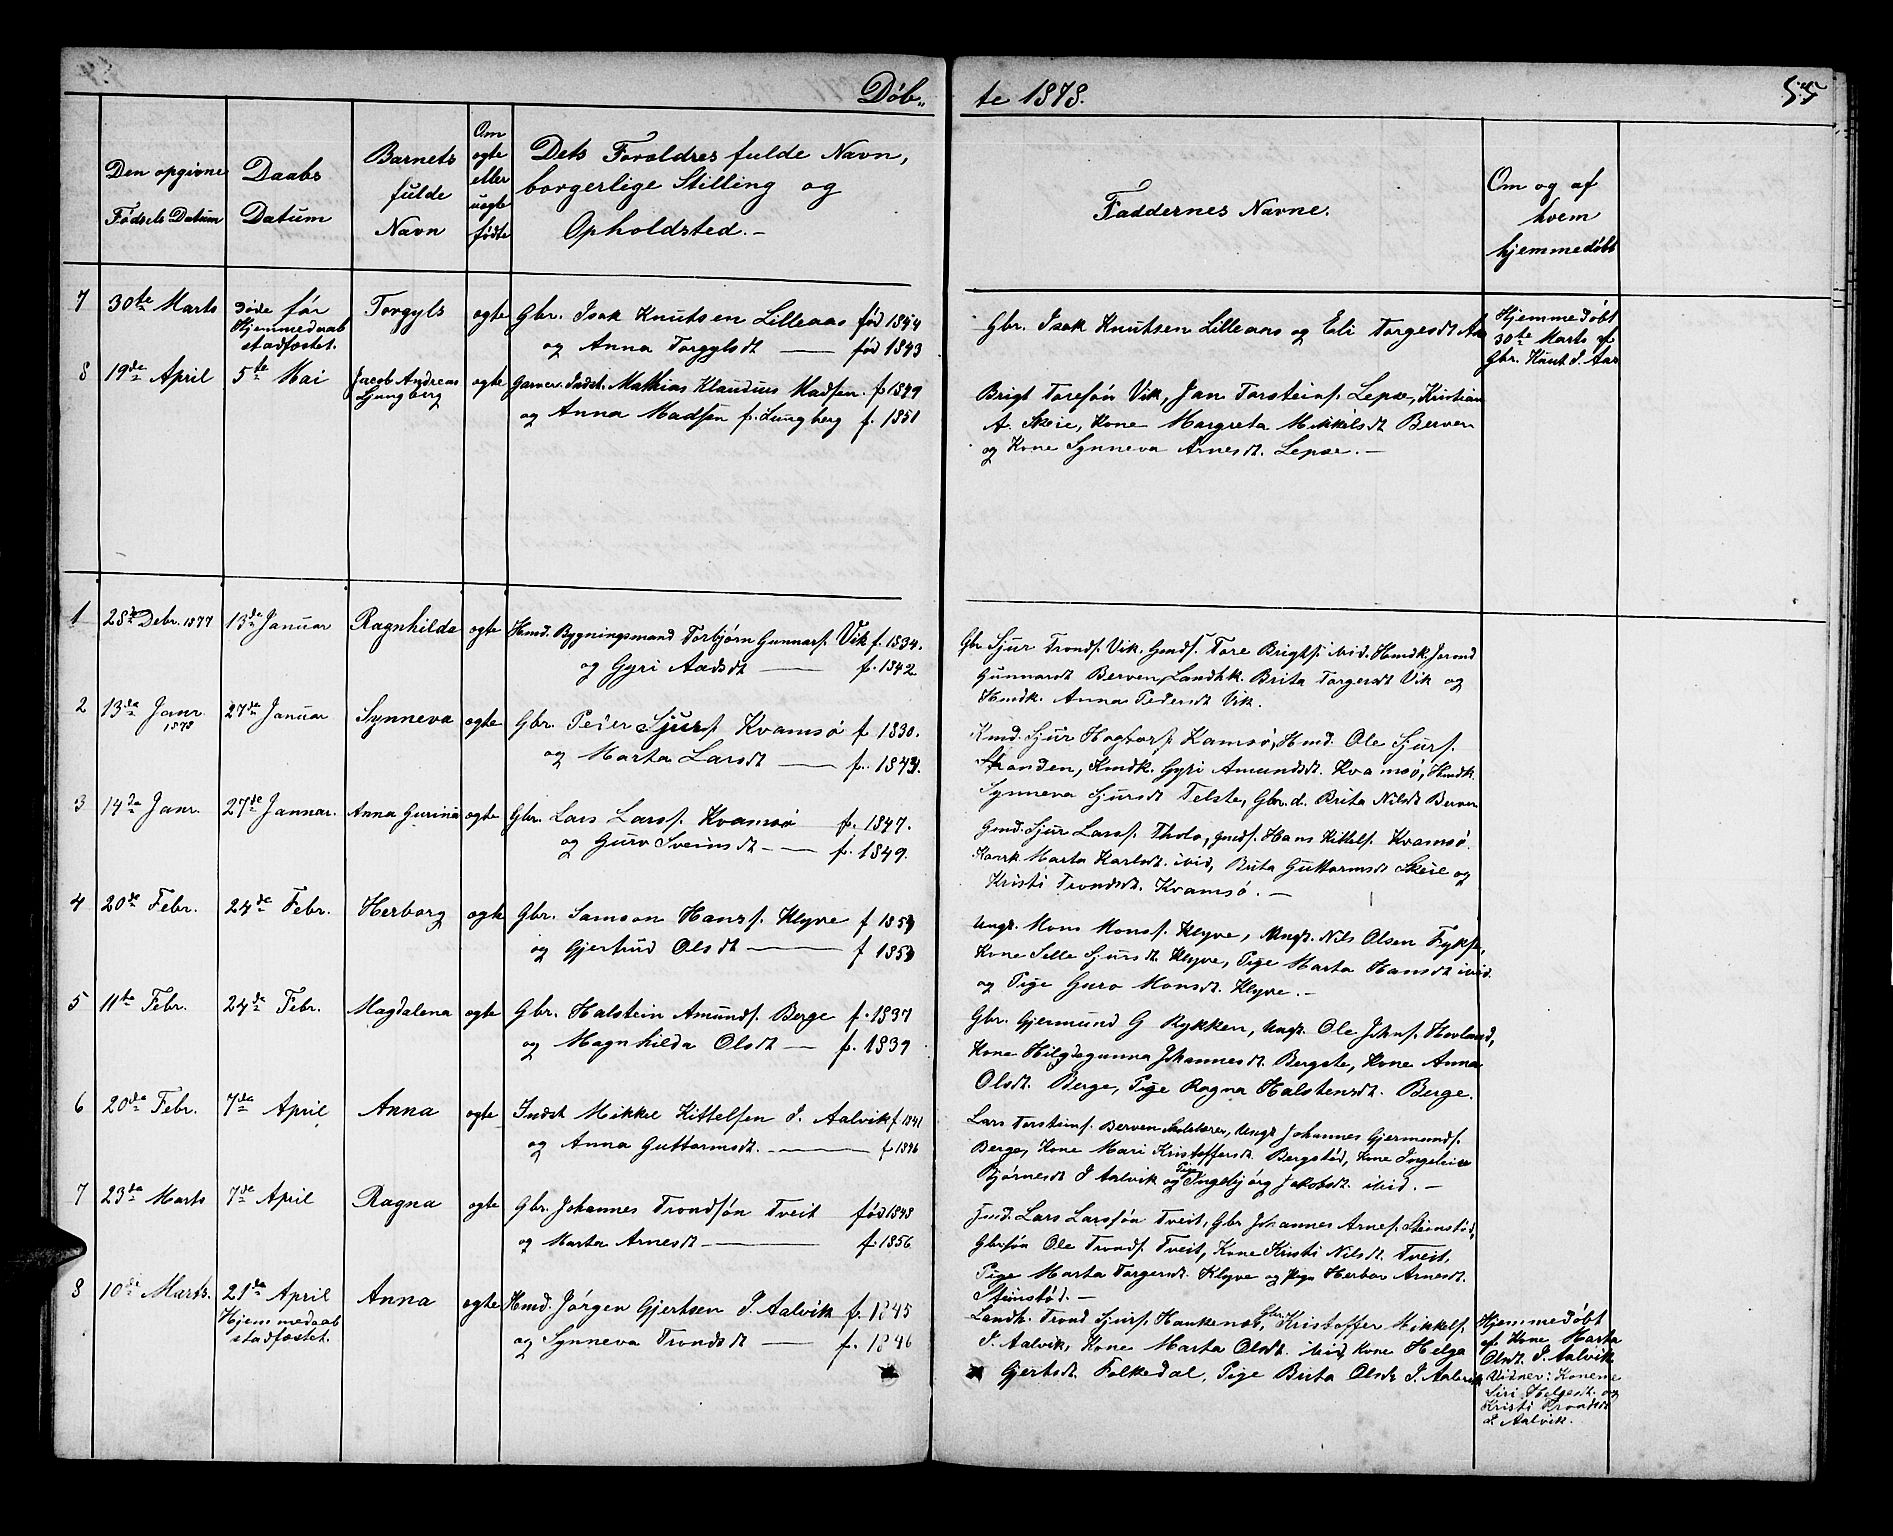 Døb„
te 1878.
55
Den opgivne
Fødsels Datum
Daabs
Datum
Barnets
fulde
Navn
Om
ægte
eller
uægte
fødte
Dets Forældres fulde Navn,
borgerlige Stilling og
Opholdsted.—
Faddernes Navne.
Om og af
hvem
hjemmedøbt
7 30te Marts
døde før
Hjemmedaab
stadfæstet.
Torgyls
ægte
Gbr. Isak Knutsen Lilleaas fød 1854
og Anna Torgylsdt — fød 1843
Gbr. Isak Knutsen Lilleaas og Eli Torgesdt Aas
Hjemmedøbt
30te Marts af
Gbr. Knut J. Aas
8 19de April
5te Mai
Jacob Andreas
Ljungberg
ægte
Garver. Indst. Mathias Klaudius Madsen. f. 1849
og Anna Madsen f. Lungberg f. 1851
Brigt Toresøn Vik, Jan Torsteins. Lepsæ, Kristian
A. Skeie, Kone Margreta Mikkilsdt Berven
og Kone Synneva Arnesdt. Lepsæ.—
1 28de Debr. 1877
13de Januar
Ragnhilda
ægte
Hmd. Bygningsmand Torbjørn Gunnars. Vik f. 1834.
og Gyri Aadsdt — f. 1842
Gbr Sjur Tronds. Vik. Gmds. Tore Brigts. ibid. Hmdk. Jorond
Gunnarsdt Berven, Landhk. Brita Torgersdt Vik og
Hmdk. Anna Pedersdt Vik.
2 13de Janr.
1878
27de Januar
Synneva
ægte
Gbr. Peder Sjurs. Kvamsø f 1830.
og Marta Larsdt — f. 1843.
Kmd. Sjur Hogtors. Kamsø, Hmd. Ole Sjurs.
Stranden, Kmdk. Gyri Amundsdt. Kvamsø, Hmdk.
Synneva Sjursdt Telste, Gbr.d. Brita Nilsdt Berven
3 14de Janr.
27de Januar.
Anna Gurina
ægte
Gbr. Lars Larss. Kvamsø f. 1847.
og Guro Sveinsdt — f. 1849.
Gmd. Sjur Larss. Tholo, gmds. Hans Kittels. Kvamsø.
Kark Marta Karlsdt. ibid, Brita Guttormsdt Skeie og
Kristi Trondsdt. Kvamsø.—
4 20de Febr.
24de Febr.
Herborg
ægte
Gbr. Samson Hans s. Klyve f 1853
og Gjertrud Olsdt — f 1853
Ungk. Mons Monss. Klyve, Ungk. Nils Olsen Fykse,
Kone Sille Sjursdt. Klyve, Pige Marta Hansdt ibid.
og Pige Guro Monsdt. Klyve.—
5 11te Febr.
24de Febr.
Magdalena
ægte
Gbr. Halstein Amunds. Berge f. 1837
og Magnhilda Olsdt — f. 1839
Gbr. Gjermund G Rykken, Ungk. Ole Johns. Hovland,
Kone Hilgdegunna Johannesdt. Bergste, Kone Anna
Olsdt. Berge, Pige Ragna Halstensdt. Berge.
6 20de Febr.
7de April
Anna
ægte
Indst Mikkel Kittelsen I. Aalvik f 1841
og Anna Guttormsdt. — f 1846
Lars Torsteins. Berven Skolelærer, Ungk Johannes Gjermunds.
Berge, Kone Mari Kristoffersdt. Bergstød, Kone Ingeleiv
Bjørnesdt I Aalvik og Pige Ingebjørg Jakobsdt. ibid.—
7 23de Marts
7de April
Ragna
ægte
Gbr. Johannes Trondsøn Tveit fød 1848
og Marta Arnesdt — f. 1856
Jmd. Lars Larssøn Tveit, Gbr Johannes Arnes. Steinstød,
Gbrsøn Ole Tronds. Tveit, Kone Kristi Nilsdt. Tveit,
Pige Marta Torgersdt. Klyve og Pige Herbor Arnesdt.
Steinstød.—
8 10de Marts.
21de April
Hjemmedaab
stadfæstet.
Anna
ægte
Hmd. Jørgen Gjertsen I. Aalvik f. 1845
og Synneva Trondsdt — f. 1846
Landh. Trond Sjurs. Haukenæs, Gbr. Kristoffer Mikkels.
I. Aalvik, Kone Marta Olsdt. ibid, Kone Helga
Gjertsdt. Folkedal, Pige Brita Olsdt I. Aalvik
Hjemmedøbt
af Kone Marta
Olsdt. I. Aalvik
Vidner: Konerne
Siri Helgesdt. og
Kristi Trondsdt
I. Aalvik.